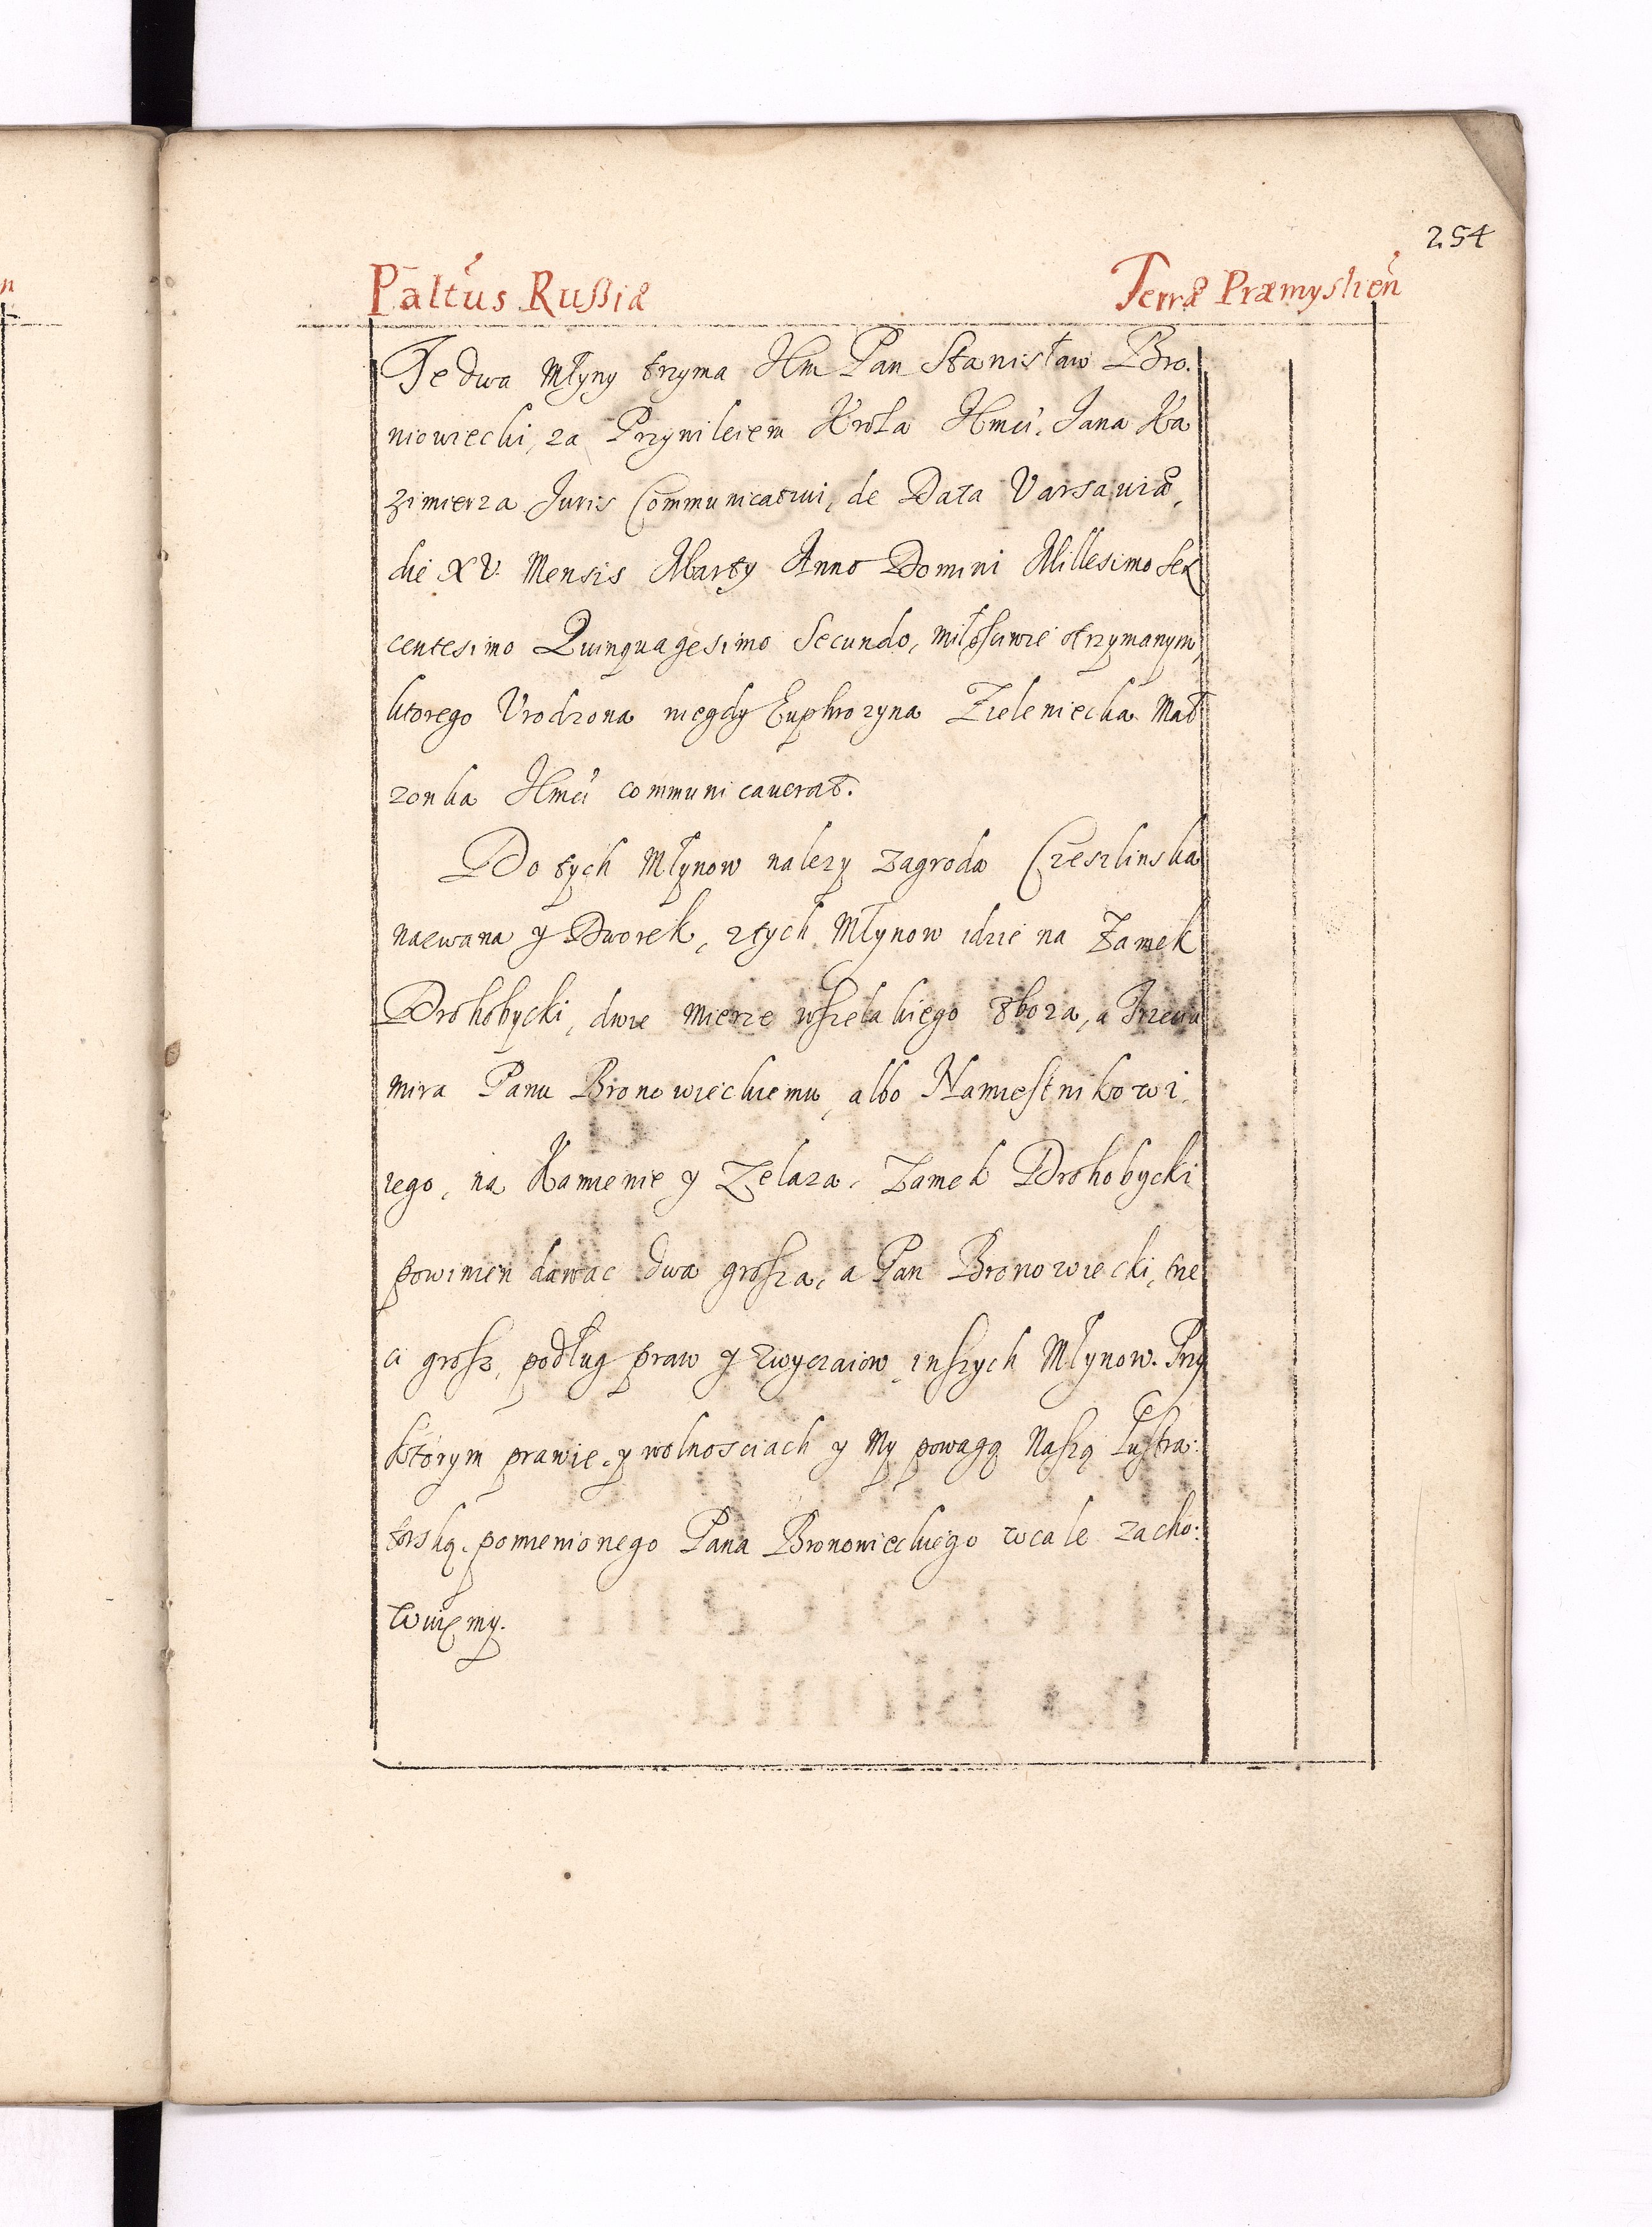 254
Paltus Rußiæ Terræ Præmyslien
Te dwa Młyny trzyma Jm Pan Stanisław Bro.
niowiecki, za Przywileiem Krola Jmci. Jana Ka
zimierza Juris Communicatiui, de Data Varsauiæ,
die XV. Mensis Marty Anno Domini Millesimo Sex
centesimo Quinquagesimo Secundo, miłosciwie otrzymanym,
ktorego Vrodzona niegdy Euphrozyna Zieleniecka Mał
zonka Jmci communicauerat.
Do tych Młynow nalezy zagroda Czeszlinska
nazwana y Dworek, z tych Młynow idzie na Zamek
Drohobycki, dwie mierze wszelakiego zboza, a Trzecia
mira Panu Bronowieckiemu, albo Namiestnikowi
iego, na Kamienie y Zelaza, Zamek Drohobycki
powinien dawac dwa grosza, a Pan Bronowiecki, trze
ci grosz, podług praw y zwyczaiow inszych Młynow. Przy
ktorym prawie, y wolnosciach y My powagą Naszą Lustra:
torską, pomienionego Pana Bronowieckiego wcale zacho:
wuiemy.